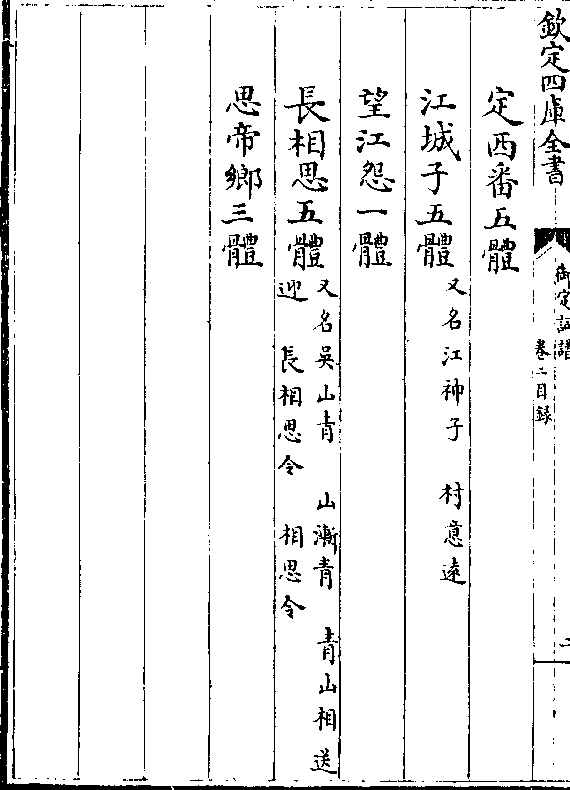 欽定四庫全書
御定詞譜
卷二目録
二
定西番五體
江城子五體 又名江神子 村意遠
望江怨一體
長相思五體 又名吳山青 山漸青 青山相送
迎 長相思令 相思令
思帝鄉三體